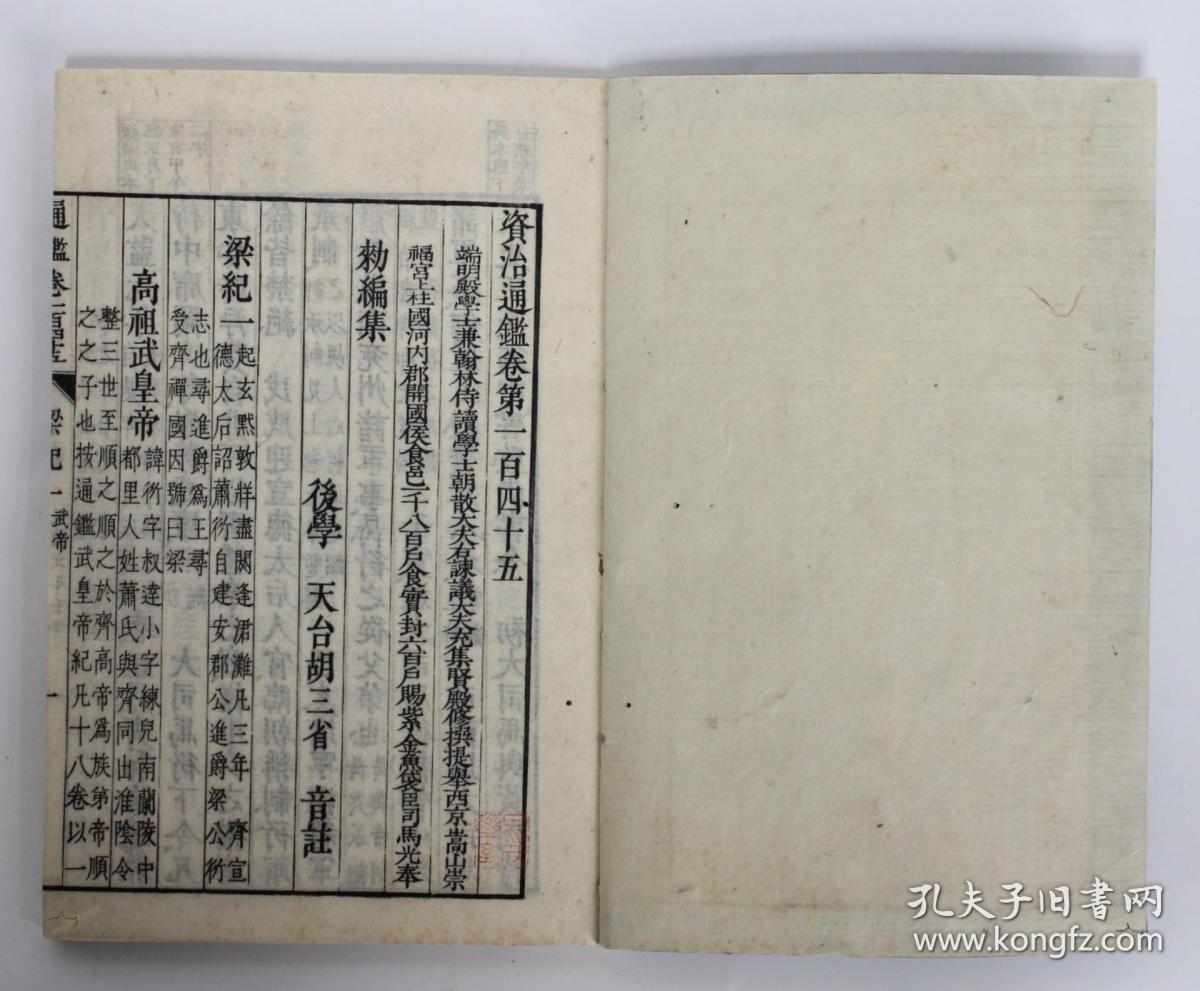 資治通鑑卷第一百四十五
端明殿學士兼翰林侍讀學士朝散大夫右諫議大夫充集賢殿修撰提舉西京嵩山崇
福宮上柱國河内郡開國侯食邑一千八百戶食實封六百戶賜紫金魚袋臣司馬光奉
勑編集
後學 天台胡三省 音註
梁紀一
起玄黓敦牂盡閼逢涒灘凡三年 齊宣
德太后詔蕭衍自建安郡公進爵梁公衍
志也尋進爵為王尋
受齊禪國因號曰梁
高祖武皇帝
諱衍字叔達小字練兒南蘭陵中
都里人姓蕭氏與齊同出淮陰令
整三世至順之順之於齊高帝爲族第帝順
之之子也按通鑑武皇帝紀凡十八卷以一
通鑑卷一百四十五
梁紀一 武帝
一
孔夫子旧书网
www.kongfz.com